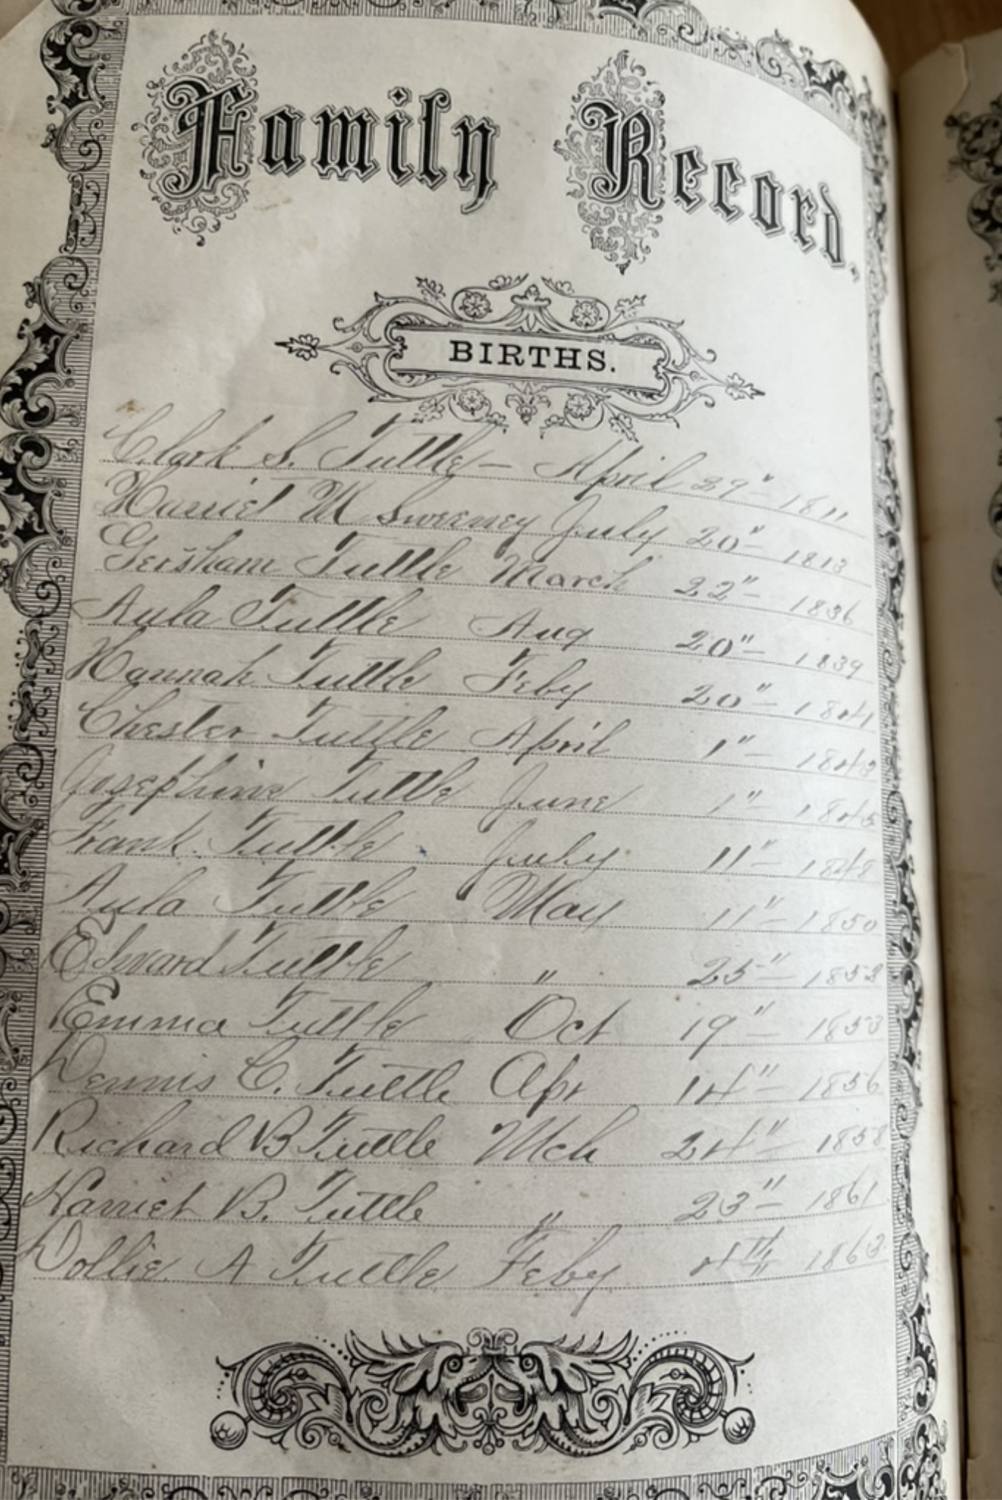 Family Record.
BIRTHS.
Clark S. Tuttle – April 29" – 1811
Harriet M Sweeney July 20" – 1813
Gersham Tuttle March 22" – 1836
Aula Tuttle Aug 20" – 1839
Hannah Tuttle Feby 20" – 1841
Chester Tuttle April 1" – 1843
Josephine Tuttle June 1" –
Frank Tuttle July 11" – 1848
Aula Tuttle May 11" – 1850
Edward Tuttle " 25" – 1852
Emma Tuttle Oct 19" – 1853
Dennis C. Tuttle Apr 14" – 1856
Richard B Tuttle Mch 24" – 1858
Harriet B. Tuttle " 23" – 1861
Dollie A Tuttle Feby 4th 1863